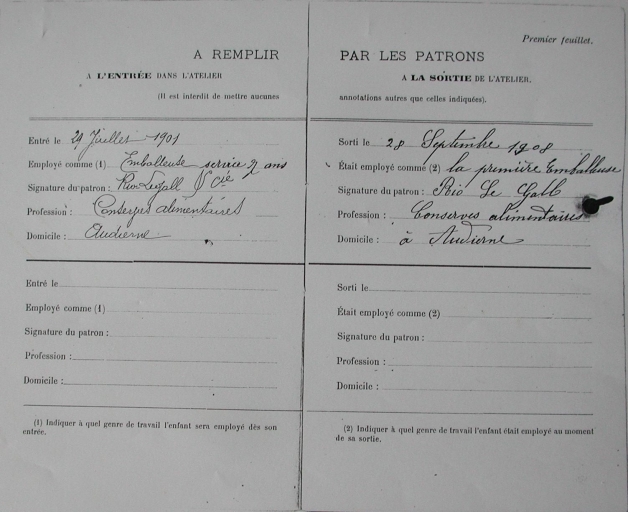 Premier feuillet.
A REMPLIR PAR LES PATRONS
A L'ENTRÉE DANS L'ATELIER
(Il est interdit de mettre aucunes
Entré le 29 Juillet 1901
Employé comme (1) Emballeuse service 7 ans
Signature du patron : Rio Legall & Cie
Profession : Conserves alimentaires
Domicile : Audierne
Entré le
Employé comme (1)
Signature du patron :
Profession :
Domicile :
(1) Indiquer à quel genre de travail l'enfant sera employé dès son
entrée.
A LA SORTIE DE L'ATELIER.
annotations autres que celles indiquées).
Sorti le 28 Septembre 1908
Était employé comme (2) la première Emballeuse
Signature du patron : Rio Le Gall
Profession : Conserves alimentaires
Domicile : à Audierne
Sorti le
Était employé comme (2)
Signature du patron :
Profession :
Domicile :
(2) Indiquer à quel genre de travail l'enfant était employé au moment
de sa sortie.